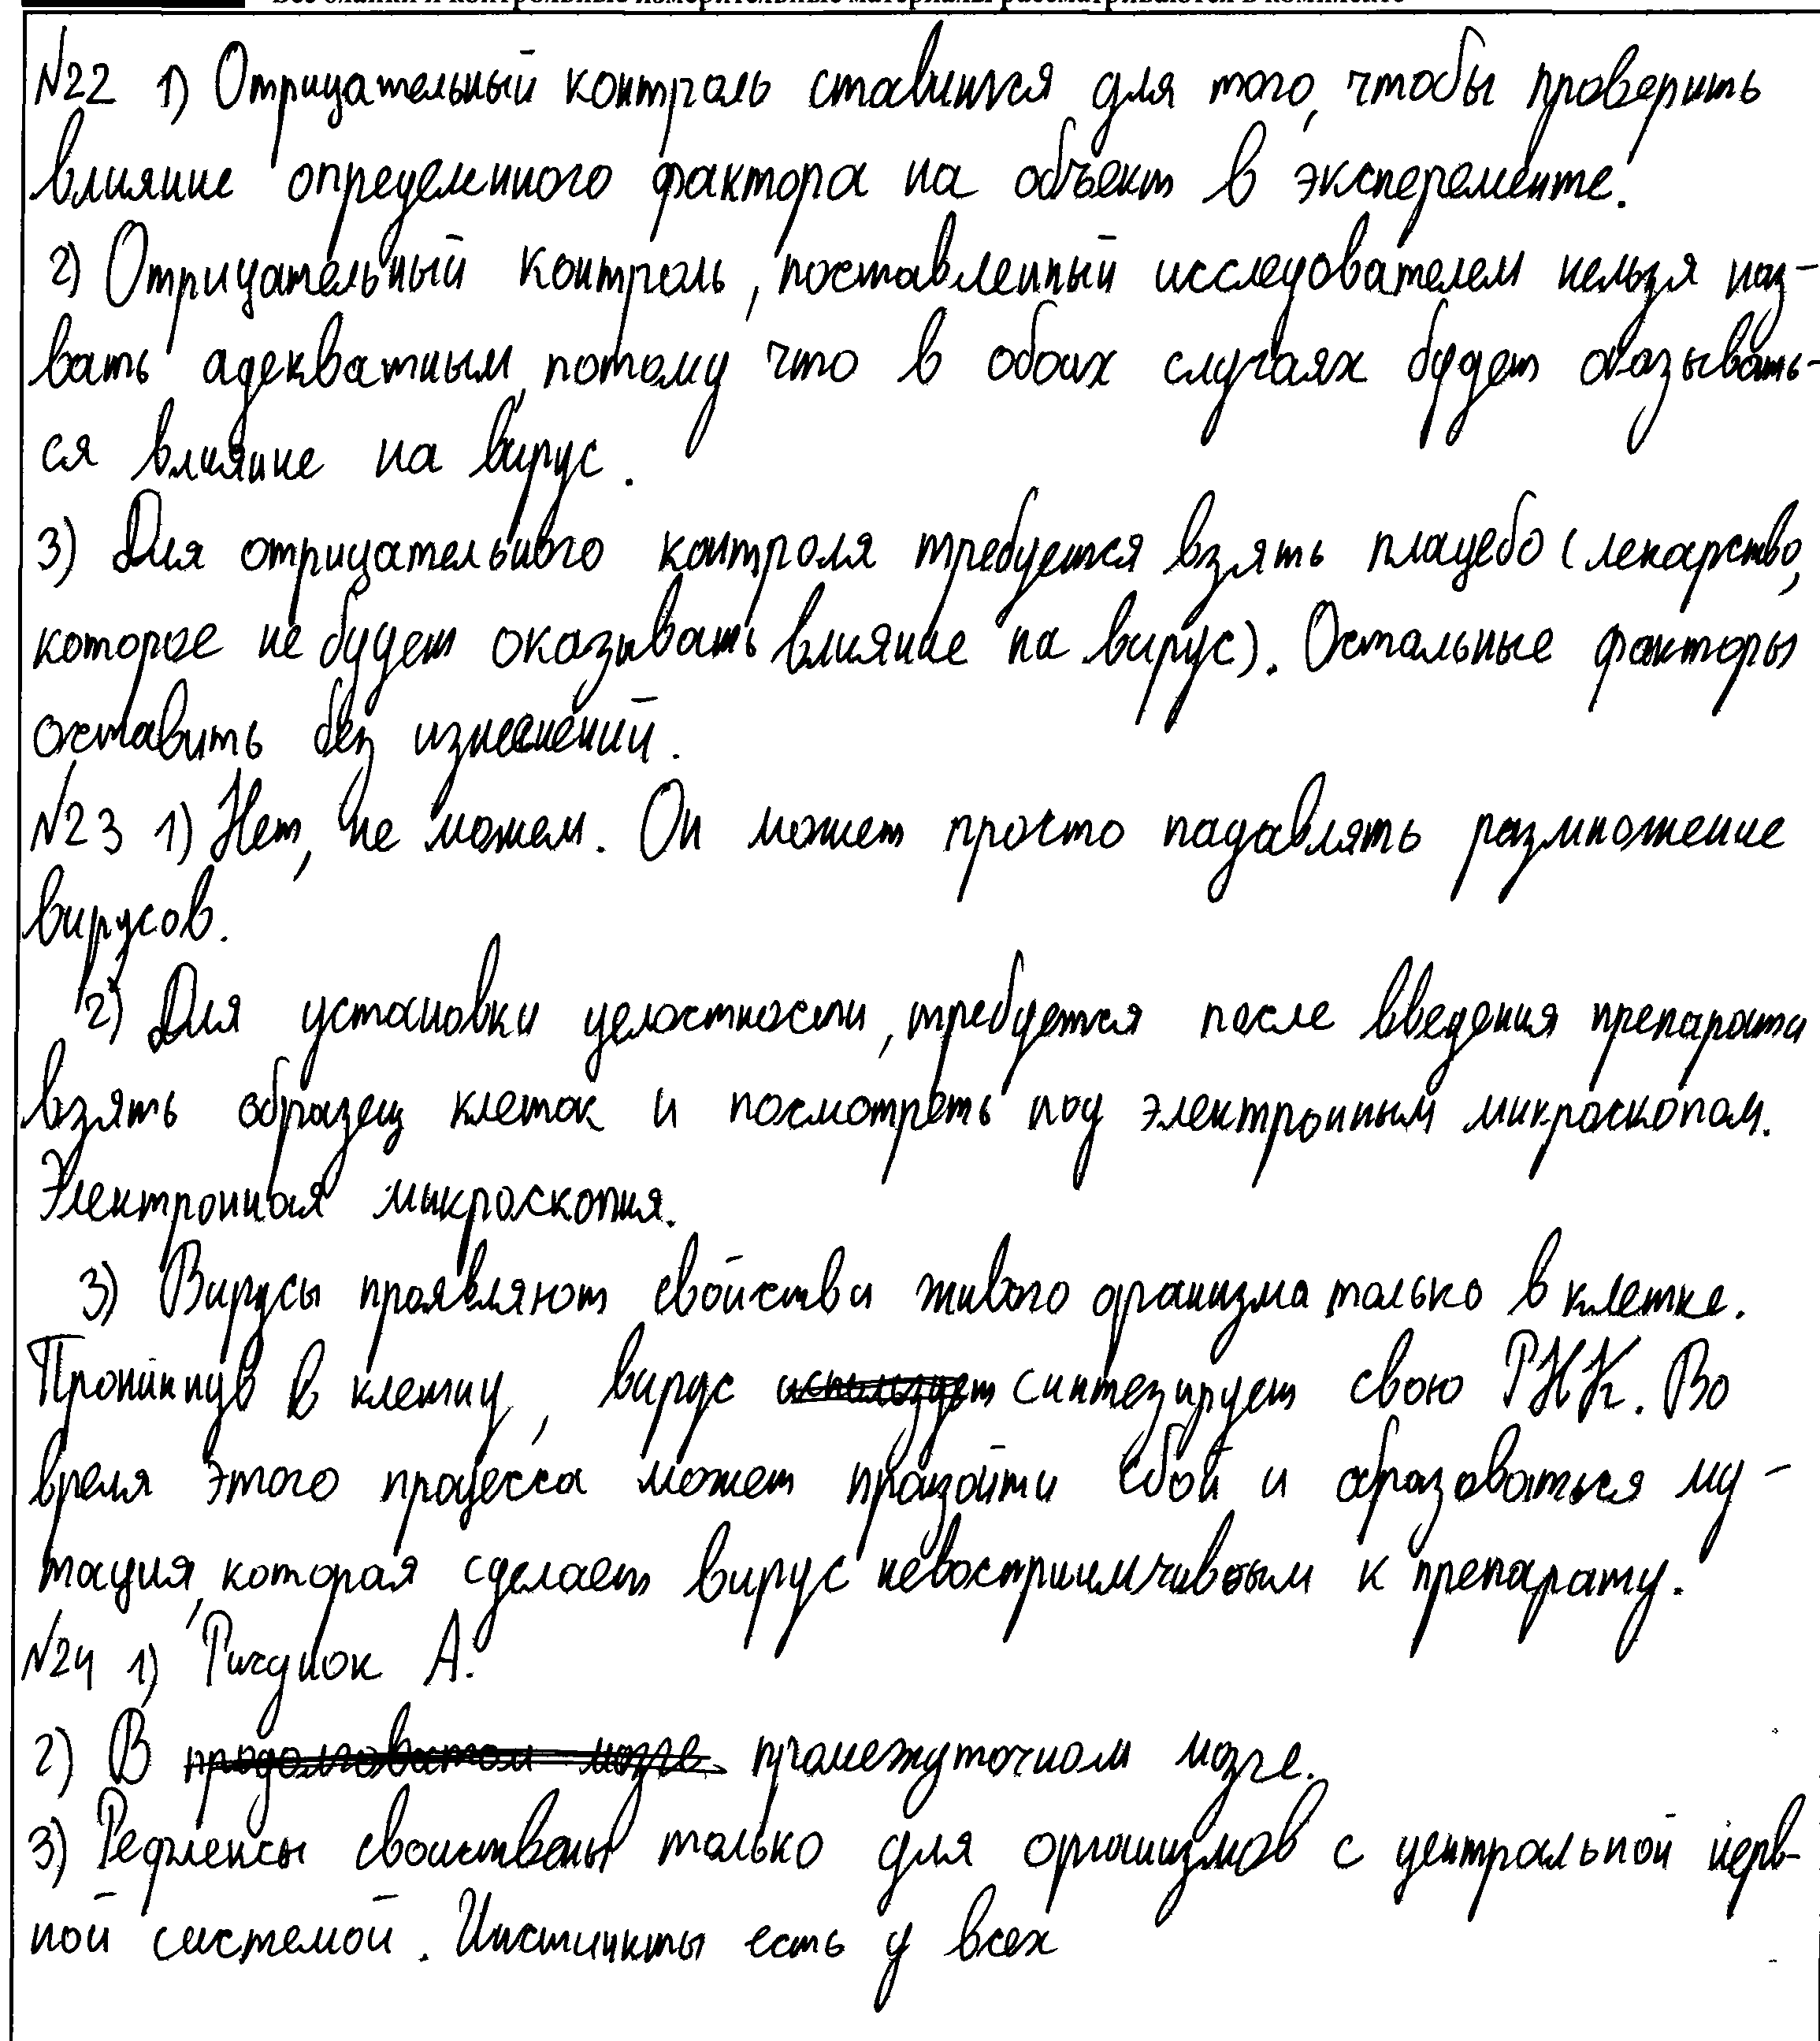 Все бланки и контрольные измерительные материалы рассматриваются в комплекте
№22 1) Отрицательный контроль ставится для того, чтобы проверить
влияние определенного фактора на объект в эксперементе.
2) Отрицательный контроль, поставленный исследователем нельзя наз-
вать адекватным, потому что в обоих случаях будет оказывать-
ся влияние на вирус.
3) Для отрицательного контроля требуется взять плацебо (лекарство,
которое не будет оказывать влияние на вирус). Остальные факторы
оставить без изменений.
№23 1) Нет, не может. Он может просто падавлять размножение
вирусов.
2) Для установки целостности, требуется после введения препарата
взять образец клеток и посмотреть под электронным микроскопом.
Электронная микроскопия.
3) Вирусы проявляют свойства живого организма только в клетке.
Проникнув в клетку, вирус использует синтезирует свою РНК. Во
время этого процесса может произойти сбой и образоваться му-
тация, которая сделает вирус невосприимчивым к препарату.
№24 1) Рисунок А.
2) В продолговатом мозге промежуточном мозге.
3) Рефлексы свойствены только для организмов с центральной нерв-
ной системой. Инстинкты есть у всех